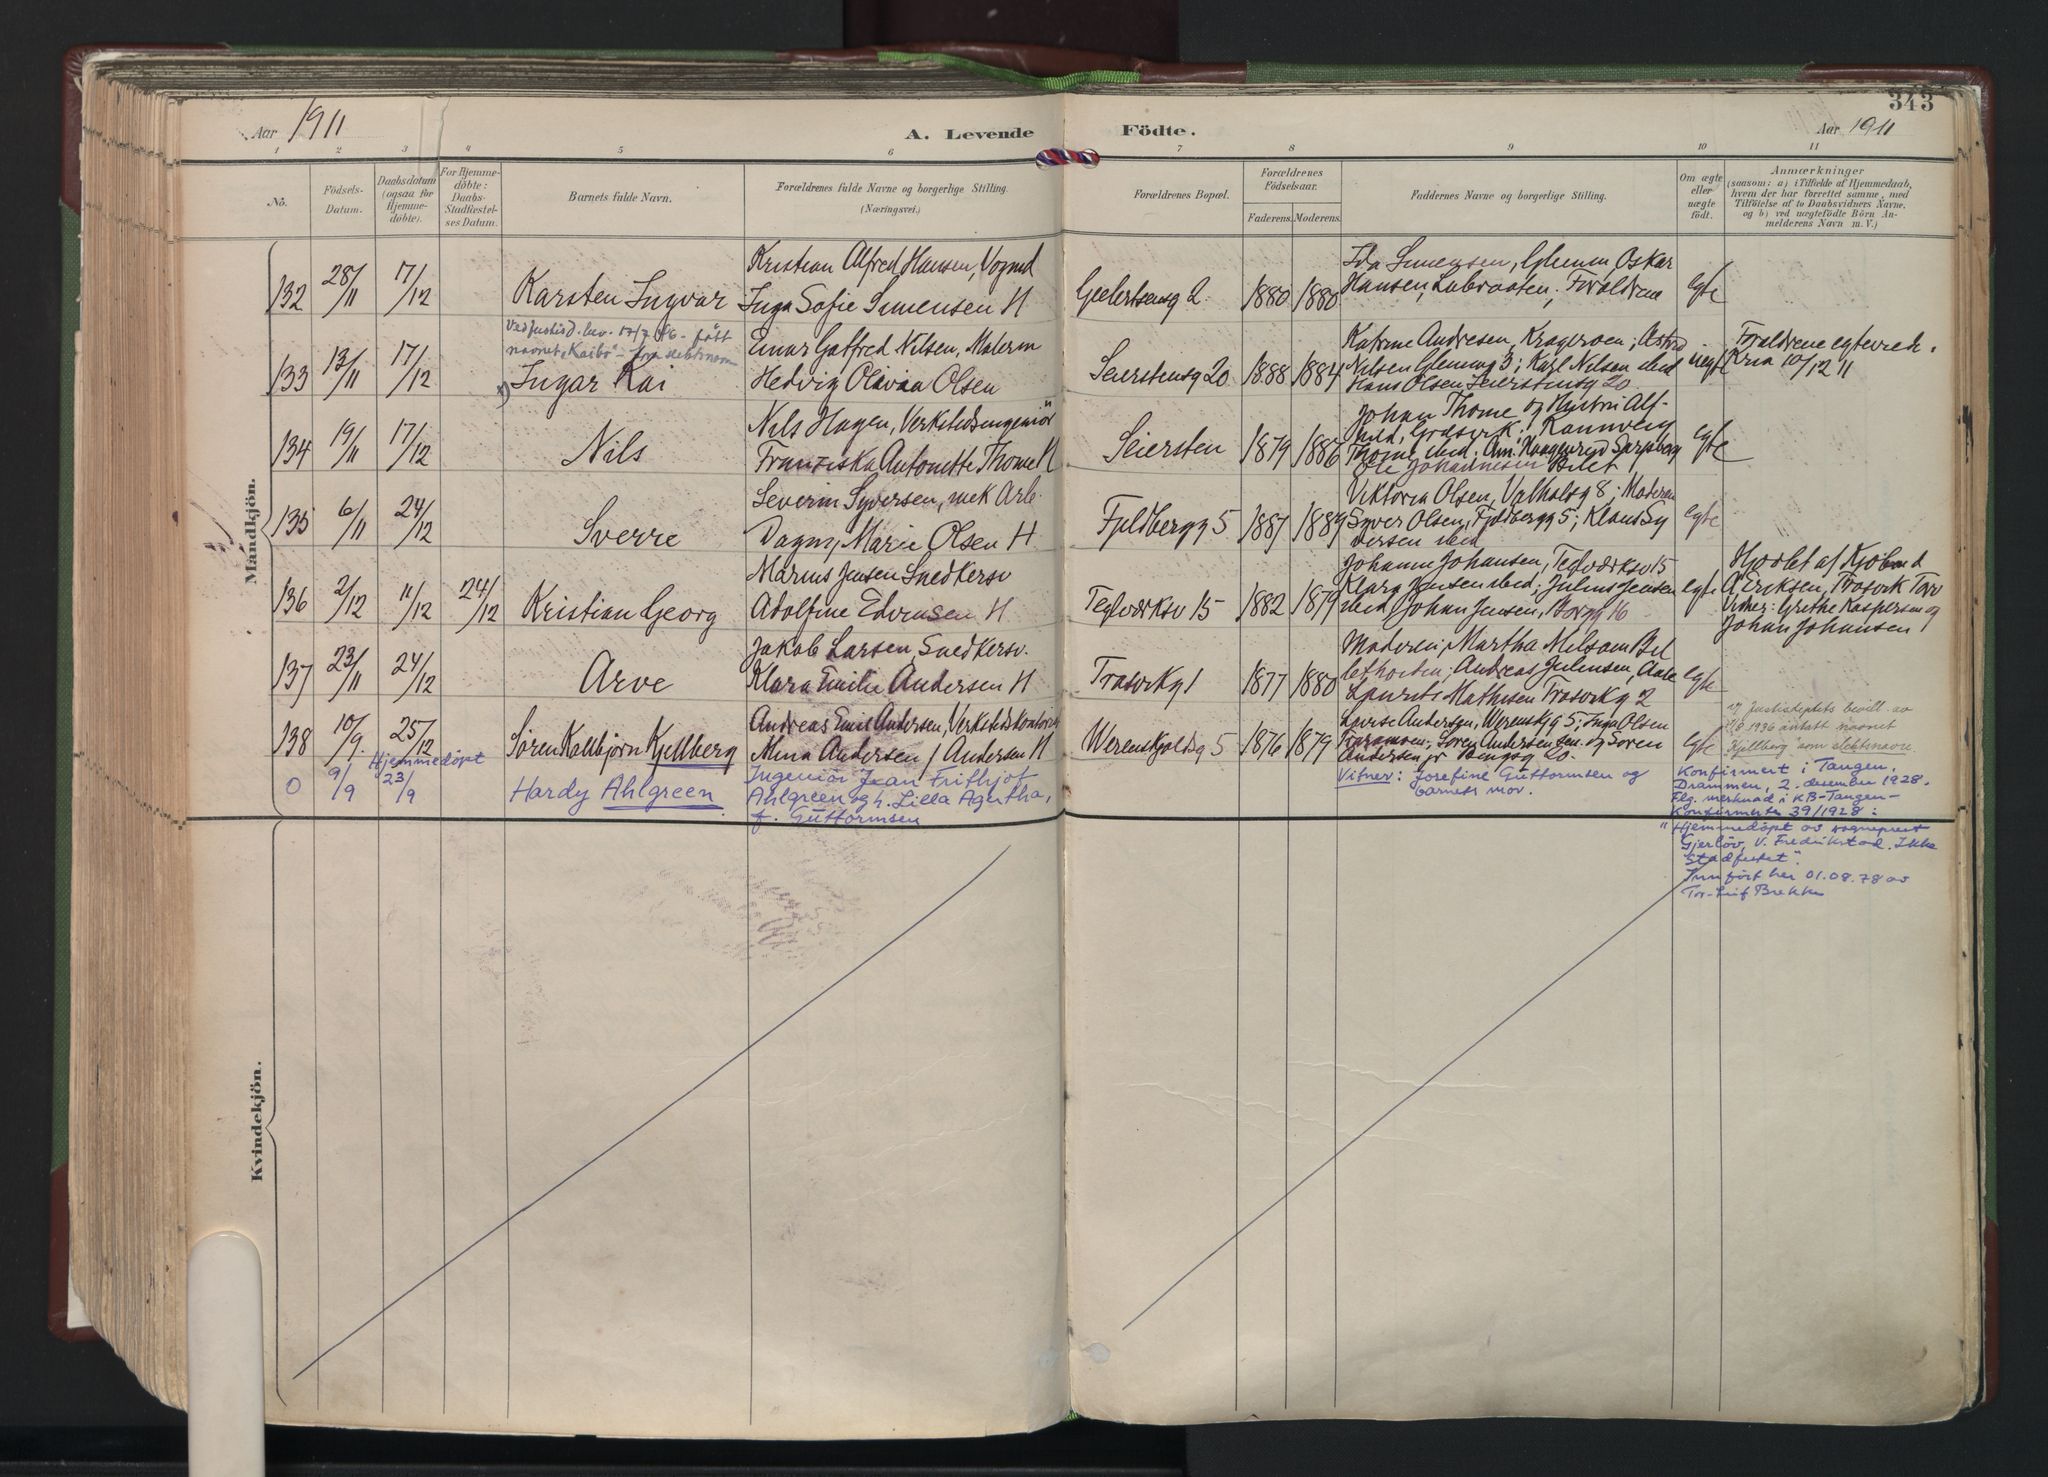 343
Aar 1911
A. Levende Födte.
Aar 1911
1 2 3 4 5 6 7 8 9 10 11
No.
Födsels-
Datum.
Daabsdatum
(ogsaa for
Hjemme-
döbte).
For Hjemme-
döbte:
Daabs-
Stadfæstel-
ses Datum.
Barnets fulde Navn.
Forældrenes fulde Navne og borgerlige Stilling.
(Næringsvei.)
Forældrenes Bopæl.
Forældrenes
Födselsaar.
Faderens. Moderens.
Faddernes Navne og borgerlige Stilling.
Om ægte
eller
uægte
födt.
Anmærkninger
(saasom: a) i Tilfælde af Hjemmedaab,
hvem der har forrettet samme, med
Tilföielse af to Daabsvidners Navne,
og b) ved uægtefödte Börn An-
melderens Navn m. V.)
Mandkjön.
132 28/11 17/12 Karsten Ingvar
Kristian Alfred Hansen, Vognmd
Inga Sofie Simensen H
1880 1880
Ida Simensen, Glemm Oskar
Hansen, Labraaten; Foraldrene
egte
133 13/11 17/12
navnet "Kaibo" - fra slektnavn
Ingar Kai
Einar Gotfred Nilsen, Malersv
Hedvig Olivia Olsen
Seierstensg 20 1888 1884
Katrine Andresen, Krageroen; Astrid
Nilsen Glemmg 3; Karl Nilsen ibid
Hans Olsen Seierstensg 20
uegte
Foraldrene egteviede.
Kria 10/12 11
134 19/11 17/12 Nils
Nils Hagen, Verkstedsingeniör
Franziska Antonette Thome H
Seiersten 1879 1886
Johan Thome og Hustru Alf-
hild, Greaaker; Rannveig
Thome ibid. Am. Haagenrud Sarpsborg
Ole Johannesen Bilet
egte
135 6/11 24/12 Sverre
Severin Syversen, mek Arb.
Dagny Marie Olsen H
Fjeldbergg 5 1887 1889
Viktoria Olsen, Valhalsg 8; Moderen
Syver Olsen, Fjeldbergg 5; Klaus Sy
versen ibid
egte
136 2/12 11/12 24/12 Kristian Georg
Marius Jensen Snedkersv
Adolfine Edvinsen H
Teglværksv 15 1882 1879
Johanne Johansen, Teglværksv 15
Klara Jensen ibid; Julius Jensen
ibid Johan Jensen, Borgg 16
egte
Hjdöbt af Kjöbmd
A Eriksen, Trosvik Torv
Vidner: Grethe Kaspersen og
Johan Johansen
137 23/11 24/12 Arve
Jakob Larsen, Snedkersv.
Klara Emilie Andersen H
Trosvikg 1 1877 1880
Moderen; Martha Nilssen Bil
lethorten; Andreas Julensen, Aale
Laurits Mathisen Trosvikg 2
egte
138 10/9. 25/12 Sören Kallbjörn Kjellberg
Andreas Emil Andersen, Verkstedskontorist
Alma Andersen f Andersen H
Werenskjoldsg 5 1876 1879
Lovise Andersen, Werensdg 5; Inga Olsen
Traraaven; Sören Andersen sen. og Sören
Andersen jr Bingsg 20.
egte
1) Justisdeptets bevill. av
1/8 1936 antatt navnet
"Kjellberg" som slektnavn.
Hjemmedöpt
0 9/9 23/9 Hardy Ahlgreen
Ingeniör Jean Frithjof
Ahlgreen og h. Lilla Agatha,
f. Guttormsen
Vitner: Josefine Guttormsen og
barnets mor.
Konfirmert i Tangen,
Drammen, 2. desember 1928.
Flg. merknad i KB-Tangen-
Konfirmerte 39/1928:
"Hjemmedöpt av sogneprest
Gjerlöv, V. Fredrikstad. Ikke
stadfestet".
Innfört her 01.08.78 av
Tor-Leif Brekke
Kvindekjön.